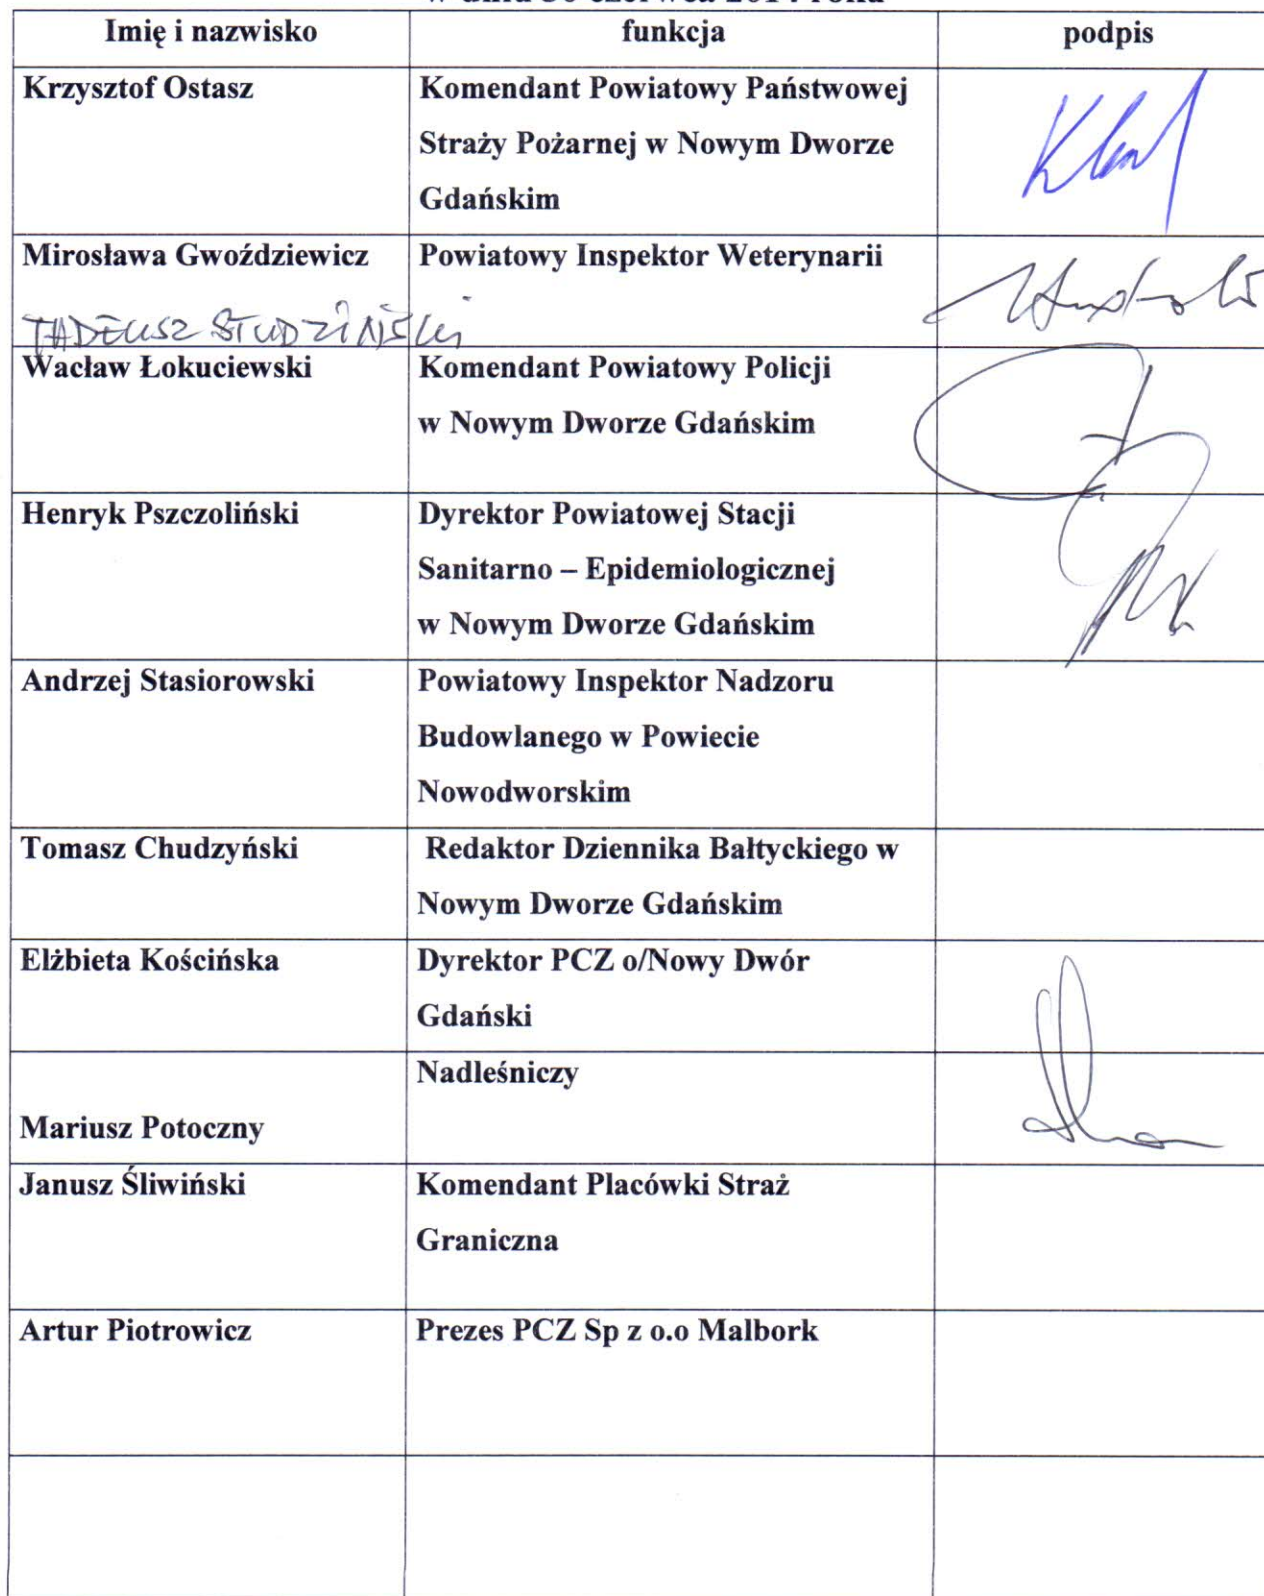 w dniu 30 czerwca 2014 roku
Imię i nazwisko funkcja podpis
Krzysztof Ostasz Komendant Powiatowy Państwowej
Straży Pożarnej w Nowym Dworze
Gdańskim
Mirosława Gwoździewicz Powiatowy Inspektor Weterynarii
TADEUSZ STUDZIŃSKI
Wacław Łokuciewski Komendant Powiatowy Policji
w Nowym Dworze Gdańskim
Henryk Pszczoliński Dyrektor Powiatowej Stacji
Sanitarno – Epidemiologicznej
w Nowym Dworze Gdańskim
Andrzej Stasiorowski Powiatowy Inspektor Nadzoru
Budowlanego w Powiecie
Nowodworskim
Tomasz Chudzyński Redaktor Dziennika Bałtyckiego w
Nowym Dworze Gdańskim
Elżbieta Kościńska Dyrektor PCZ o/Nowy Dwór
Gdański
Nadleśniczy
Mariusz Potoczny
Janusz Śliwiński Komendant Placówki Straż
Graniczna
Artur Piotrowicz Prezes PCZ Sp z o.o Malbork